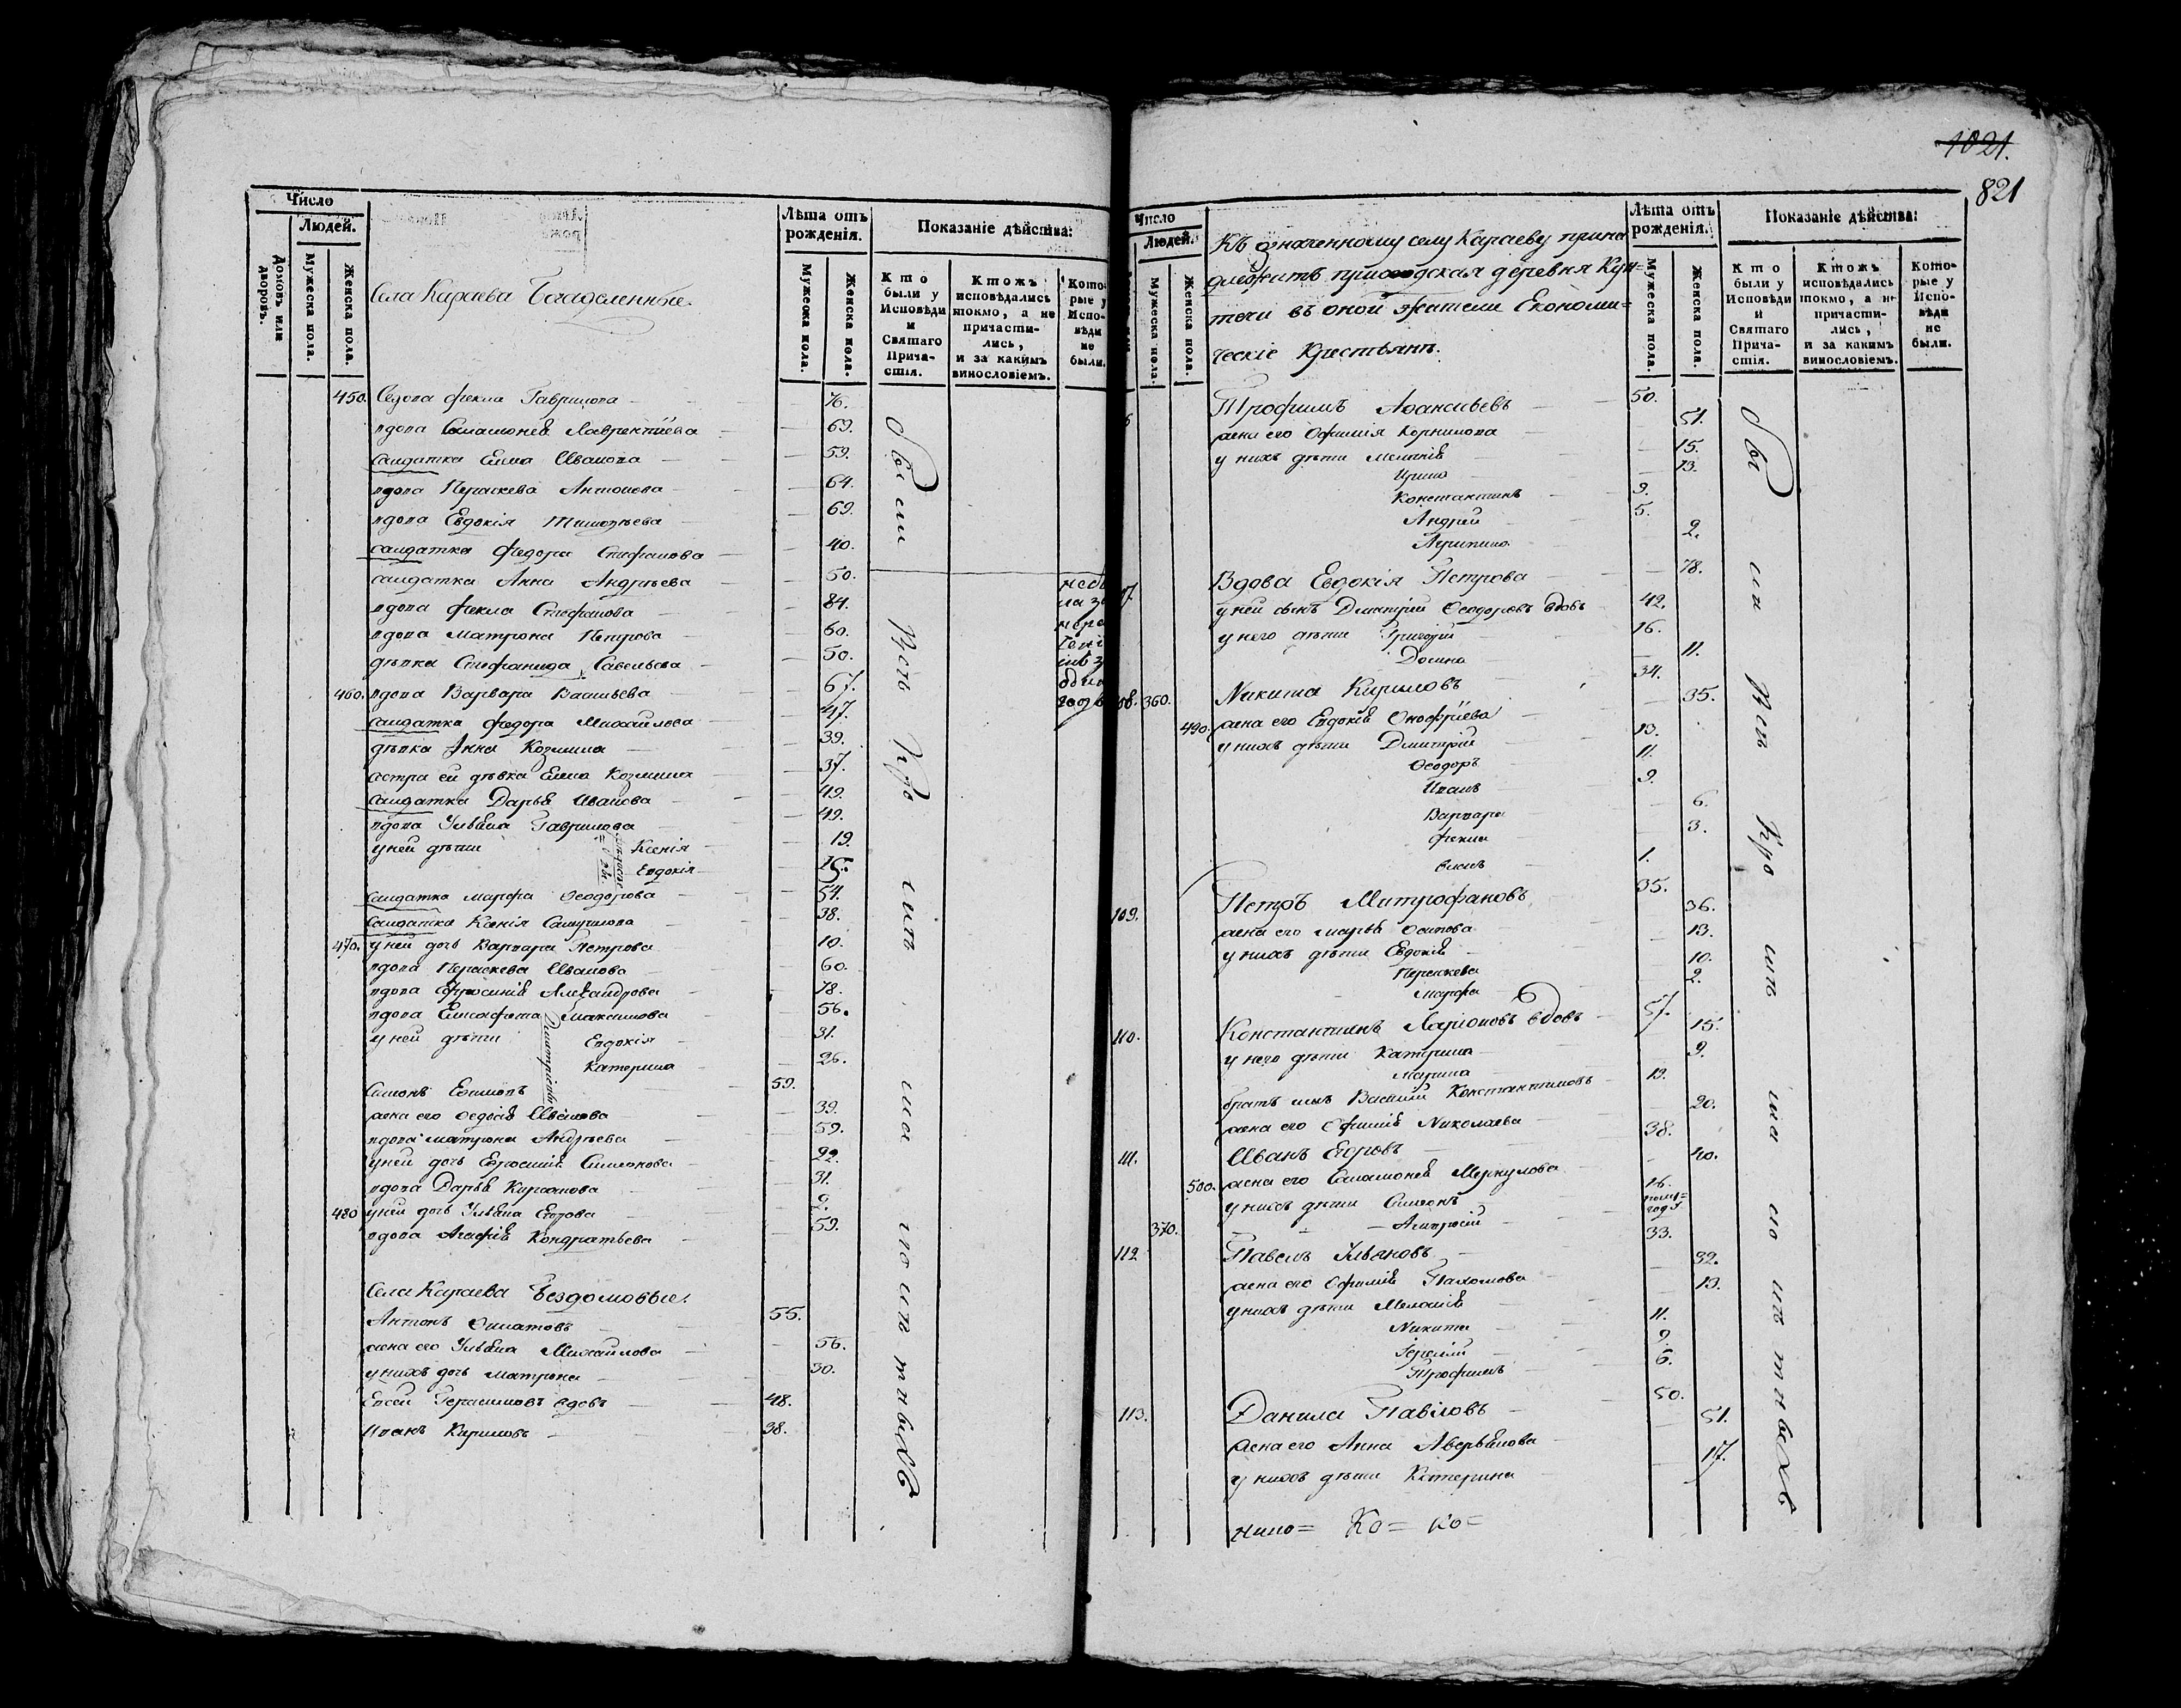 1021.
821
Число
Людей.
Домовъ или дворовъ.
Мужеска пола.
Женска пола.
Села Караева Богаделенные.
Лѣта отъ рожденія.
Мужеска пола.
Женска пола.
Показаніе дѣйства:
Кто были у Исповѣди и Святаго Прича- стія.
Ктожъ исповѣдались токмо, а не причасти- лись, и за какимъ винословіемъ.
Кото- рые у Испо- вѣди не были.
450. вдова Фекла Гаврилова 76.
вдова Саламонея Лаврентіева 69.
салдатка Елена Иванова 59.
вдова Параскева Антонова 64.
вдова Евдокія Тимофеева 69.
салдатка Федора Стефанова 40.
салдатка Анна Андрѣева 50.
вдова Фекла Стефанова 84.
вдова Матрона Петрова 60.
дѣвка Стефанида Савельева 50.
460. вдова Варвара Васильева 67.
салдатка Федора Михайлова 47.
дѣвка Анна Козмина 39.
сестра ей дѣвка Елена Козмина 37.
салдатка Дарья Иванова 49.
вдова Ульяна Гаврилова 49.
у ней дѣти Ксенія 19.
Евдокія 15.
салдатка Марфа Феодорова 54.
салдатка Ксенія 38.
470. у ней дочь Варвара Петрова 10.
вдова Параскева Иванова 60.
вдова Ефросинія Александрова 78.
вдова Елисафета Максимова 56.
у ней дѣти Евдокія 31.
Катерина 26.
Симонъ Ефимовъ 59.
жена его Федосія Иванова 39.
вдова Матрона Андрѣева 59.
у ней дочь Ефросинія Симонова 22.
вдова Дарья Кирсанова 31.
480 у ней дочь Ульяна Егорова 2.
вдова Агафія Кондратьева 59.
Села Караева Бездомовые.
Антонъ 55.
жена его Ульяна Михайлова 56.
у нихъ дочь Матрона 30.
Евсей Герасимовъ вдовъ 48.
Иванъ Кириловъ 38.
Число
Людей.
Мужеска пола.
Женска пола.
Къ означенному селу Караеву прина
длежитъ приходская деревня Куп=
течи въ оной жители Економи=
ческіе Крестьянъ.
Лѣта отъ рожденія.
Мужеска пола.
Женска пола.
Показаніе дѣйства:
Кто были у Исповѣди и Святаго Прича- стія.
Ктожъ исповѣдались токмо, а не причасти- лись, и за какимъ винословіемъ.
Кото- рые у Испо- вѣди не были.
Трофимъ Афанасьевъ 50.
жена его Офимія Корнилова 51.
у нихъ дѣти Меланія 15.
Ирина 13.
Константинъ 9.
Андрей 5.
Агрипина 2.
Вдова Евдокія Петрова 78.
у ней сынъ Дмитрій Феодоровъ вдовъ 42.
у него дѣти Григорій 16.
Домна 11.
108. 360. Никита Кириловъ 34.
490. жена его Евдокія Онофріева 35.
у нихъ дѣти Дмитрій 13.
Феодоръ 11.
Иванъ 9.
Варвара 6.
Фекла 3.
1.
109. Петръ Митрофановъ 35.
жена его Марья Осипова 36.
у нихъ дѣти Евдокія 13.
Параскева 10.
Марфа 2.
110. Константинъ Ларіоновъ вдовъ 57.
у него дѣти Катерина 15.
Марина 9.
Василій Константиновъ 19.
жена его Офимія Николаева 20.
111. Иванъ Егоровъ 38.
500. жена его Саламонея Меркулова 40.
у нихъ дѣти Симеонъ 16.
370. Амвросій полугоду
112 Павелъ Ульяновъ 33.
жена его Офимія Пахомова 32.
у нихъ дѣти Меланія 13.
Никита 11.
9.
Трофимъ 6.
113. Данила Павловъ 50.
жена его Анна Аверьянова 51.
у нихъ дѣти Катерина 17.